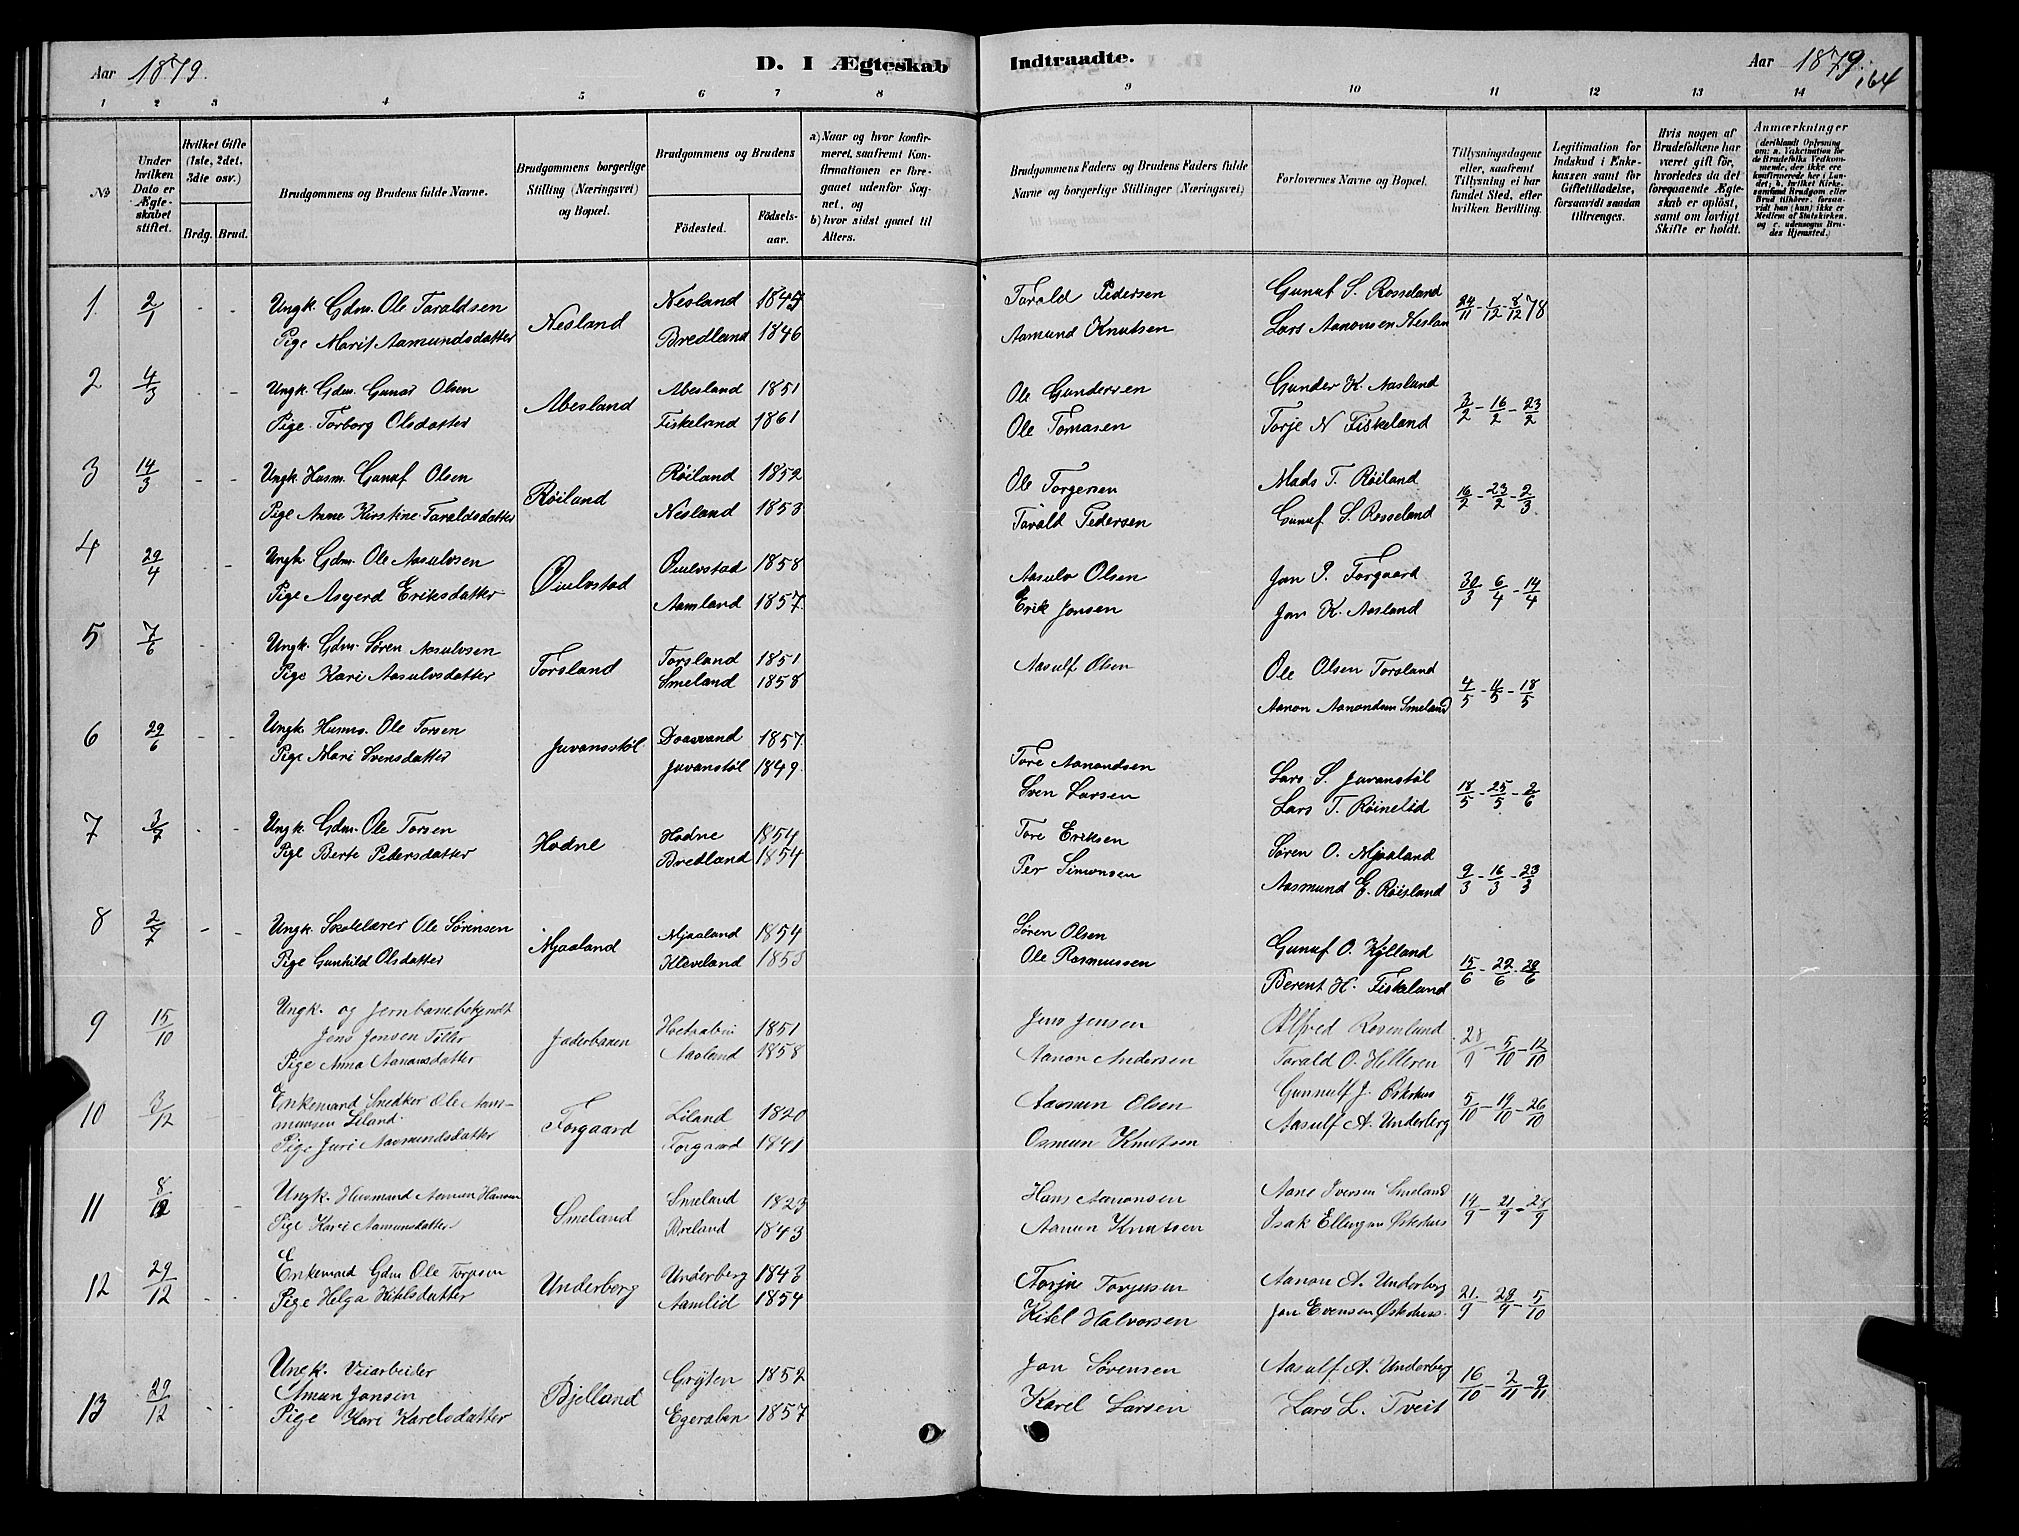 Aar 1879.
D. I Ægteskab Indtraadte.
Aar 1879.
164
1 2 3 4 5 6 7 8 9 10 11 12 13 14
No
Under hvilken Dato er Ægteskabet stiftet.
Hvilket Gifte (1ste, 2det, 3die osv.)
Brdg. Brud.
Brudgommens og Brudens fulde Navne.
Brudgommens borgerlige Stilling (Næringsvei) og Bopæl.
Brudgommens og Brudens
Födested. Födselsaar.
a) Naar og hvor konfirmeret, saafremt Konfirmationen er foregaaet udenfor Sognet, og
b) hvor sidst gaaet til Alters.
Brudgommens Faders og Brudens Faders fulde Navne og borgerlige Stillinger (Næringsvei)
Forlovernes Navne og Bopæl.
Tillysningsdagene eller, saafremt Tillysning ei har fundet Sted, efter hvilken Bevilling.
Legitimation for Indskud i Enkekassen samt for Giftetilladelse, forsaavidt saadan tiltrænges.
Hvis nogen af Brudefolkene har været gift för, hvorledes da det foregaaende Ægteskab er oplöst, samt om lovligt Skifte er holdt.
Anmærkninger (deriblandt Oplysning om: a. Vakcination for de Brudefolks Vedkommende, der ikke ere konfirmerede her i Landet; b. hvilket Kirkesamfund Brudgom eller Brud tilhörer, forsaavidt han (hun) ikke er Medlem af Statskirken, og c. udensogns Brudes Hjemsted.)
1 2/1 - - Ungk. Gdm. Ole Taraldsen Nesland Nesland 1845 Tarald Pedersen Gunuf S. Rosseland 24/11 - 1/12 - 8/12 78
Pige Marit Aamundsdatter Bredland 1846 Aamund Knutsen Lars Aanonsen Neslan
2 4/3 - - Ungk. Gdm. Gunar Olsen Abesland Abesland 1851 Ole Gundersen Gunder K. Aasland 3/2 - 16/2 - 23/2
Pige Torborg Olsdatter Fiskeland 1861 Ole Tomasen Torje N Fiskeland
3 14/3 - - Ungk. Husm. Gunuf Olsen Røiland Røiland 1852 Ole Torgersen Mads T. Røiland 16/2 - 23/2 - 2/3
Pige Anne Kirstine Taraldsdatter Nesland 1853 Tarald Pedersen Gunuf S. Rosseland
4 29/4 - - Ungk. Gdm. Ole Aasulvsen Øiulvstad Øiulvstad 1858 Aasulv Olsen Jan P. Torgaard 30/3 - 6/4 - 14/4
Pige Asgerd Eriksdatter Aamland 1857. Erik Jonsen Jan K. Aasland
5 7/6 - - Ungk. Gdm. Søren Aasulvsen Torsland Torsland 1851 Aasulf Olsen Ole Olsen Torsland 4/5 - 11/5 - 18/5
Pige Kari Aasulvsdatter Smeland 1858 Aanon Aanondsen Smeland
6 29/6 - - Ungk. Husm. Ole Torsen Juvansstøl Doasvand 1857. Tore Aanondsen Lars S. Juvanstøl 18/5 - 25/5 - 2/6
Pige Mari Svensdatter Juvanstøl 1849. Sven Larsen Lars T. Røinelid
7 3/7 - - Ungk. Gdm. Ole Torsen Hodne Hodne 1854 Tore Eriksen Søren O. Mjaaland 9/3 - 16/3 - 23/3
Pige Berte Pedersdatter Bredland 1854 Per Simonsen Aasmund E. Røisland
8 2/7 - - Ungk. Skolelærer Ole Sørensen Mjaaland Mjaaland 1854 Søren Olsen Gunuf O. Kylland 15/6 - 22/6 - 29/6
Pige Gunhild Olsdatter Kleveland 1853 Ole Rasmussen Berent H. Fiskeland
9 15/10 Ungk. og Jernbanebetjendt Jaderbanen 1851 Jens Jensen Alfred Rosenlund 28/9 - 5/10 - 12/10
Jens Jensen Tiller
Pige Anna Aanonsdatter Aasland 1858 Aanon Andersen Tarald O. Helleren
10 3/12 - - Enkemand Snedker Ole Aasmundsen Liland Torgaard Liland 1820 Aasmun Olsen Gunnulf J. Østerhus 5/10 - 19/10 - 26/10
Pige Juri Aasmundsdatter Torgaard 1841 Osmun Knutsen Aasulf A. Underberg
11 8/12 - - Ungk. Husmand Aamun Hansen Smeland Smeland 1823 Hans Aanonsen Aane Iversen Smeland 14/9 - 21/9 - 28/9
Pige Kari Aamunsdatter Breland 1843 Aamun Knutsen Isak Ellingsen Østerhus
12 29/12 - - Enkemand Gdm Ole Torjusen Underberg Underberg 1843 Torju Torjusen Aanon A. Underberg 21/9 - 28/9 - 5/10
Pige Helga Kitelsdatter Aamlid 1854 Kitel Halvorsen Jan Evensen Østerhus
13 29/12 - - Ungk. Veiarbeider Bjelland Gryten 1852 Jon Sørensen Aasulf A. Underberg 16/10 - 2/11 - 9/11
Amun Jonsen
Pige Kari Karelsdatter 1857 Karel Larsen Lars L. Tveit